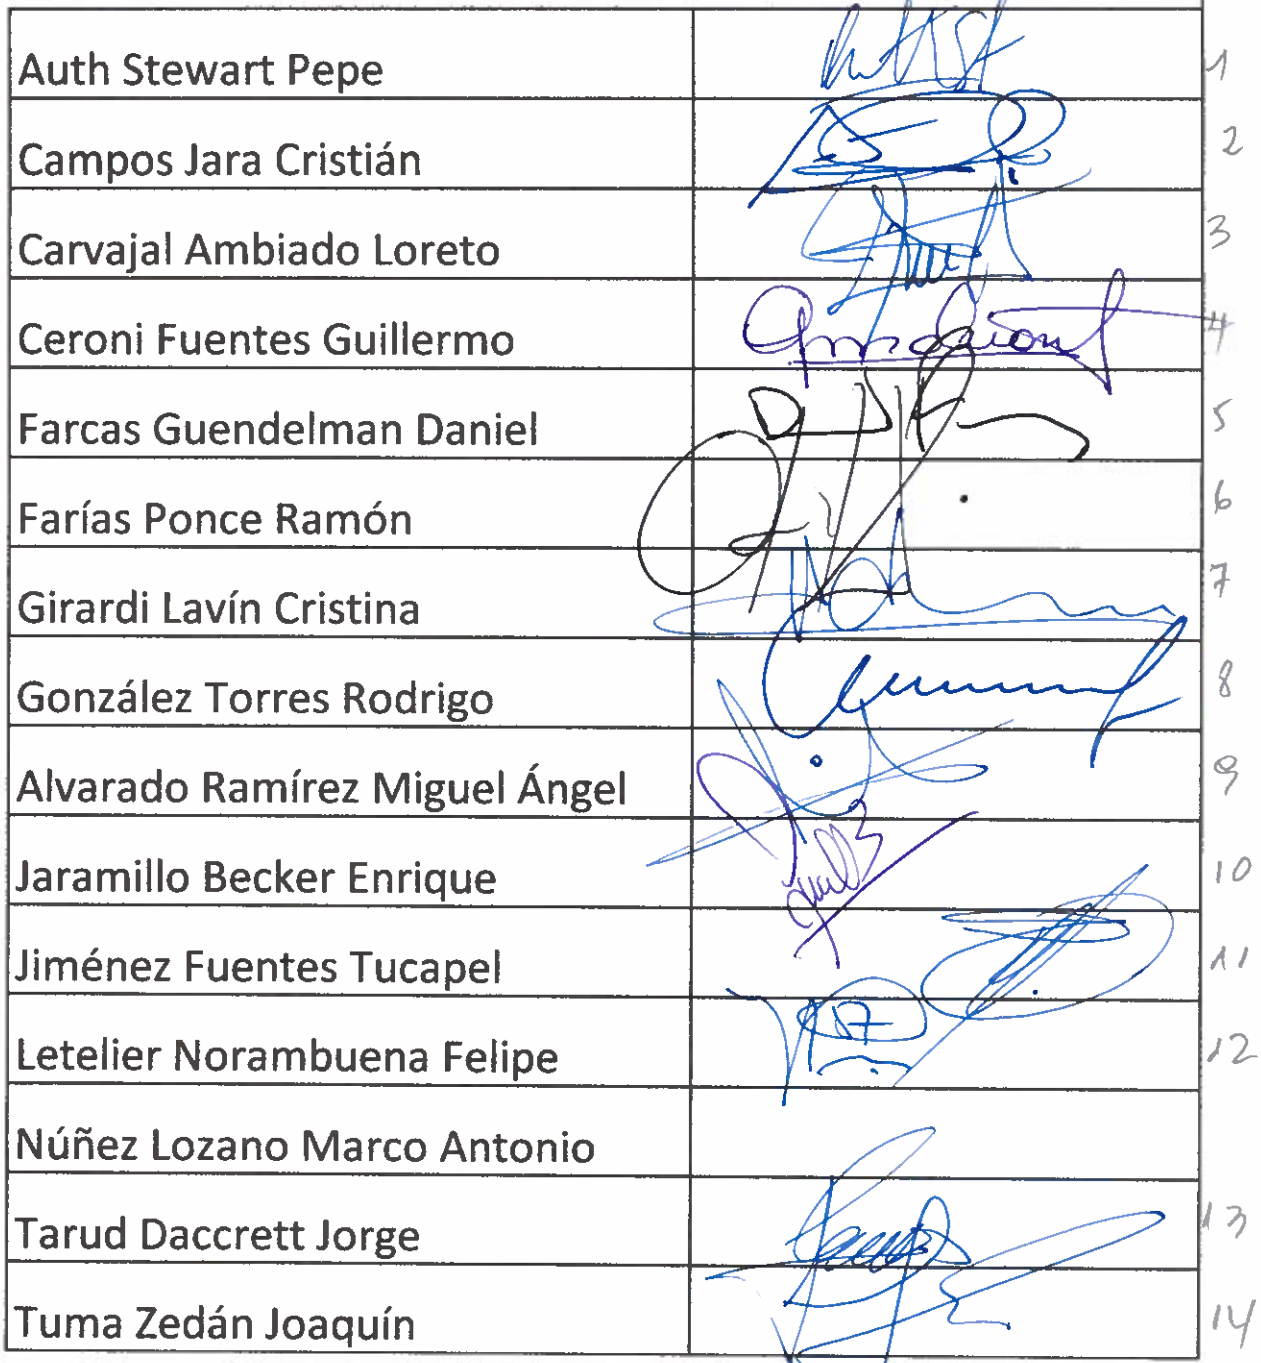 Auth Stewart Pepe 1
Campos Jara Cristián 2
Carvajal Ambiado Loreto 3
Ceroni Fuentes Guillermo 4
Farcas Guendelman Daniel 5
Farías Ponce Ramón 6
Girardi Lavín Cristina 7
González Torres Rodrigo 8
Alvarado Ramírez Miguel Ángel 9
Jaramillo Becker Enrique 10
Jiménez Fuentes Tucapel 11
Letelier Norambuena Felipe 12
Núñez Lozano Marco Antonio
Tarud Daccrett Jorge 13
Tuma Zedán Joaquín 14